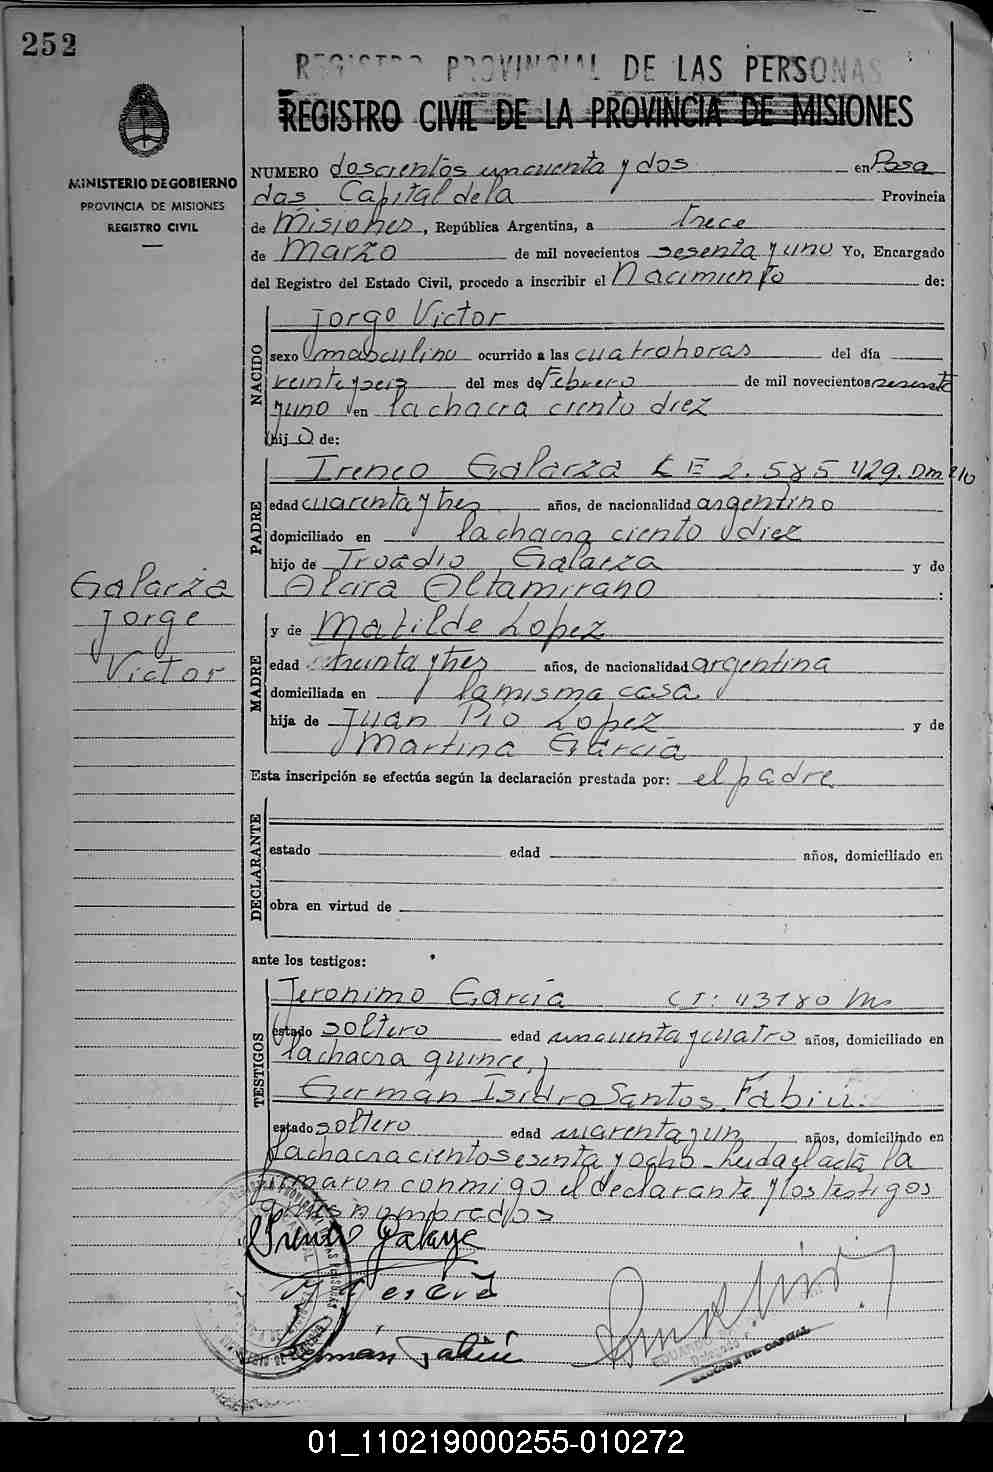 252
REGISTRO PROVINCIAL DE LAS PERSONAS
REGISTRO CIVIL DE LA PROVINCIA DE MISIONES
MINISTERIO DE GOBIERNO
PROVINCIA DE MISIONES
REGISTRO CIVIL
NUMERO doscientos cincuenta y dos en Posa
das Capital de la Provincia
de Misiones, República Argentina, a trece
de Marzo de mil novecientos sesenta y uno Yo, Encargado
del Registro del Estado Civil, procedo a inscribir el Nacimiento de:
NACIDO
Jorge Victor
sexo masculino ocurrido a las cuatro horas del día
veinte y seis del mes de Febrero de mil novecientos sesenta
y uno en la chacra ciento diez
hij o de:
PADRE
Ireneo Galarza L E 2.585.429. D.M. 210
edad cuarenta y tres años, de nacionalidad argentino
domiciliado en la chacra ciento diez
hijo de Troadio Galarza y de
Olaira Altamirano :
Galarza
Jorge
Victor
MADRE
y de Matilde Lopez
edad treinta y tres años, de nacionalidad argentina
domiciliada en la misma casa
hija de Juan Pio Lopez y de
Martina Garcia
Esta inscripción se efectúa según la declaración prestada por: el padre
DECLARANTE
estado edad años, domiciliado en
obra en virtud de
ante los testigos:
TESTIGOS
Jeronimo Garcia C I: 43780 Ms
estado soltero edad cincuenta y cuatro años, domiciliado en
la chacra quince, y
German Isidro Santos Fabiu
estado soltero edad cuarenta y un años, domiciliado en
la chacra ciento sesenta y ocho - Leida el acta la
firmaron conmigo el declarante y los testigos
antes nombrados
Ireneo Galarza
German Fabiu
SECCION DE CAPITAL
01_110219000255-010272